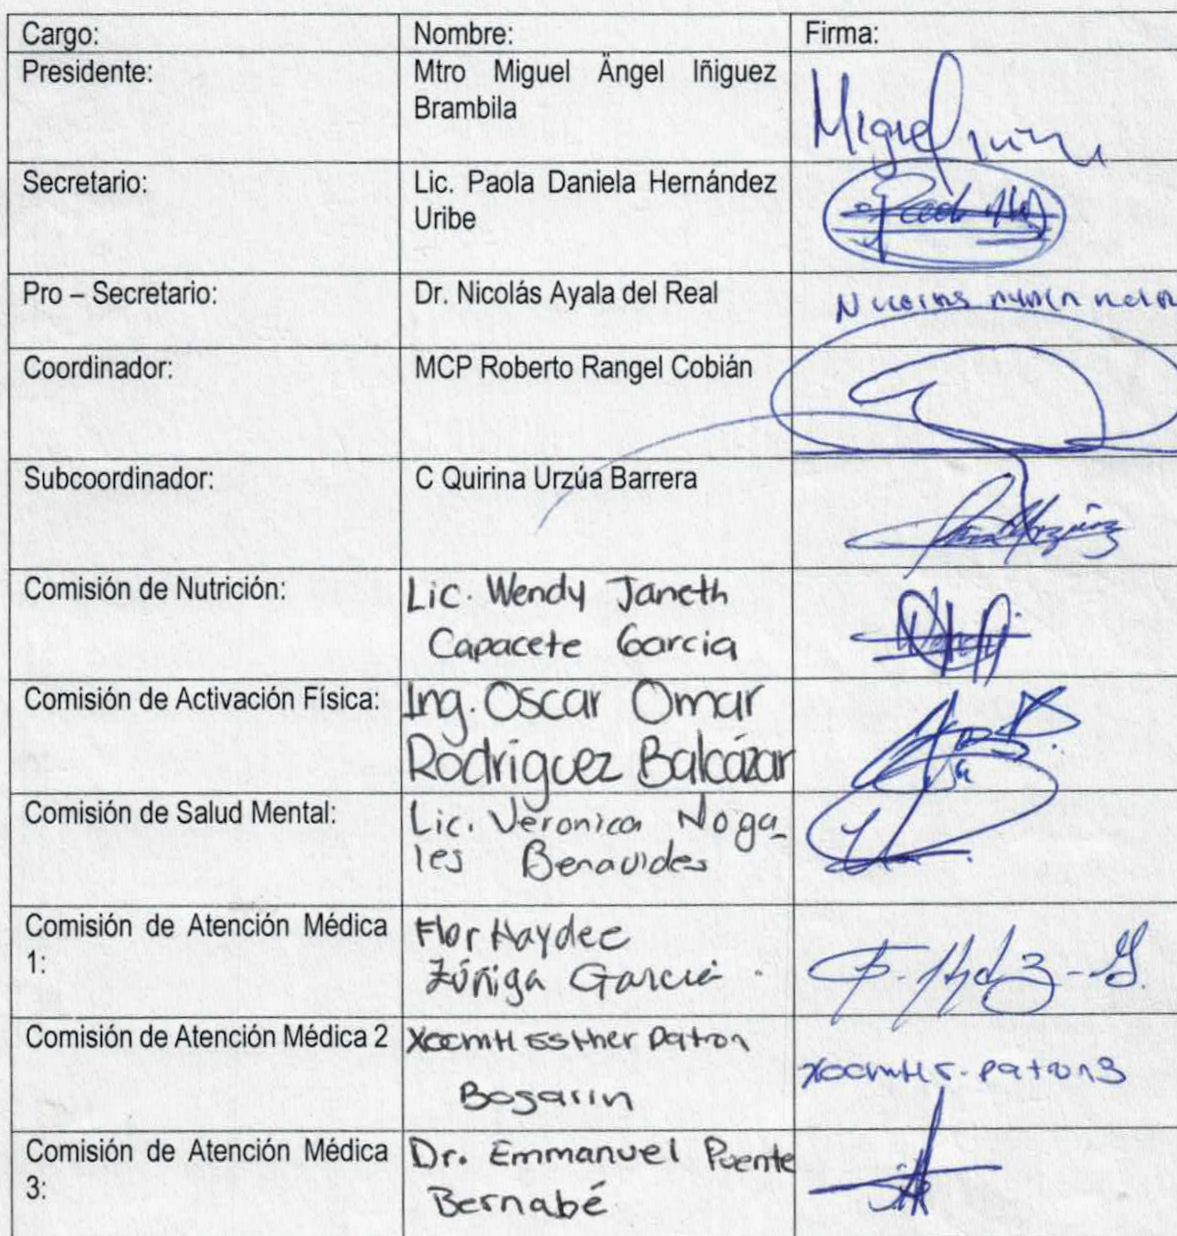 Cargo: Nombre: Firma:
Presidente: Mtro Miguel Ängel Iñiguez
Brambila
Miguel
Secretario: Lic. Paola Daniela Hernández
Uribe
Pro – Secretario: Dr. Nicolás Ayala del Real
Coordinador: MCP Roberto Rangel Cobián
Subcoordinador: C Quirina Urzúa Barrera
Comisión de Nutrición: Lic. Wendy Janeth
Capacete Garcia
Comisión de Activación Física: Ing. Oscar Omar
Rodríguez Balcázar
Comisión de Salud Mental: Lic. Veronica Noga_
les Benavides
Comisión de Atención Médica Flor Haydee
1: Zúñiga Garcia
Comisión de Atención Médica 2 Esther Patron
Bogarin
Comisión de Atención Médica Dr. Emmanuel Puente
3: Bernabé